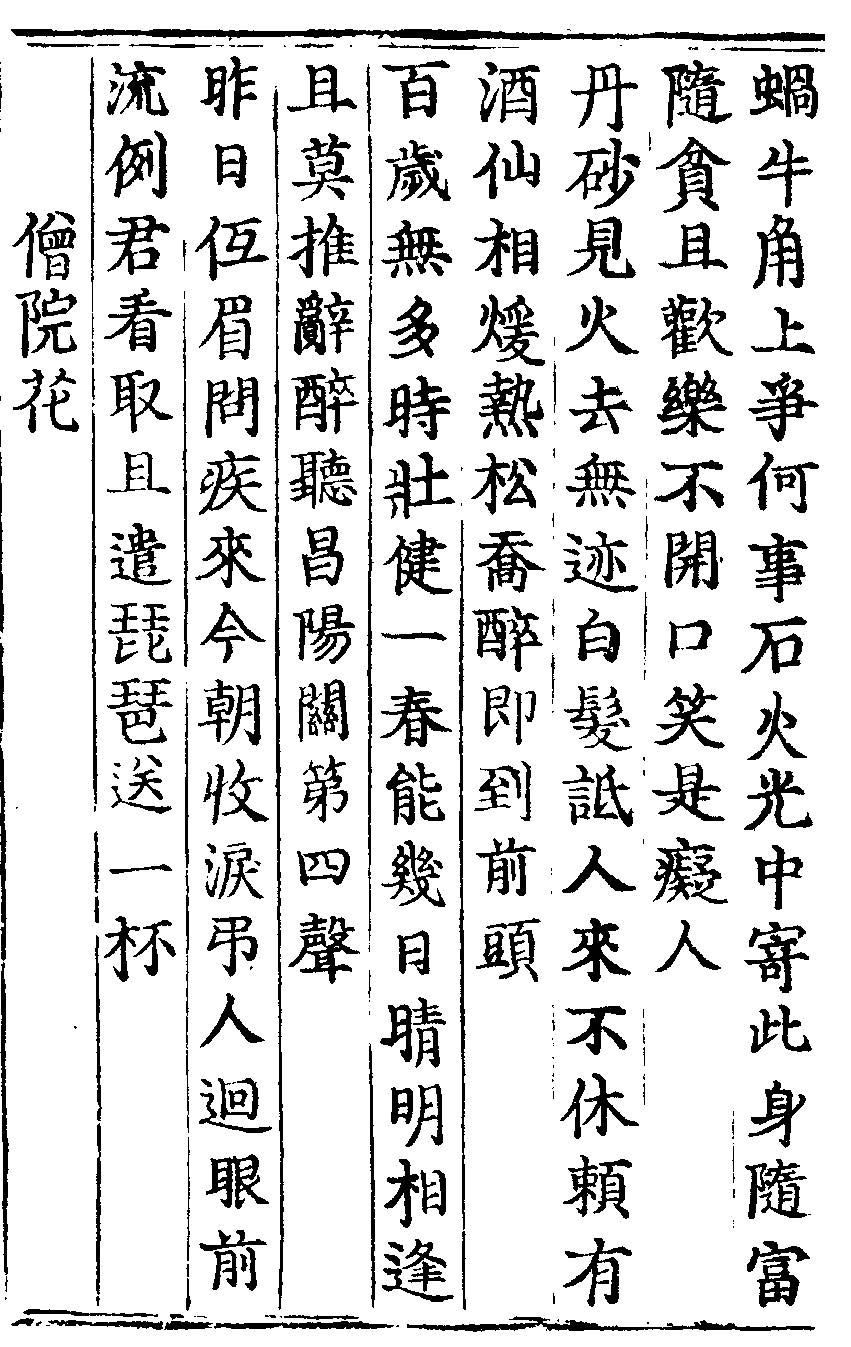 蝸牛角上爭何事石火光中寄此身隨富
隨貧且歡樂不開口笑是癡人
丹砂見火去無迹白髮詆人來不休賴有
酒仙相煖熱松喬醉即到前頭
百歲無多時壯健一春能幾日晴明相逢
且莫推辭醉聽昌陽關第四聲
昨日伍眉問疾來今朝收淚弔人迴眼前
流例君看取且遣琵琶送一杯
僧院花